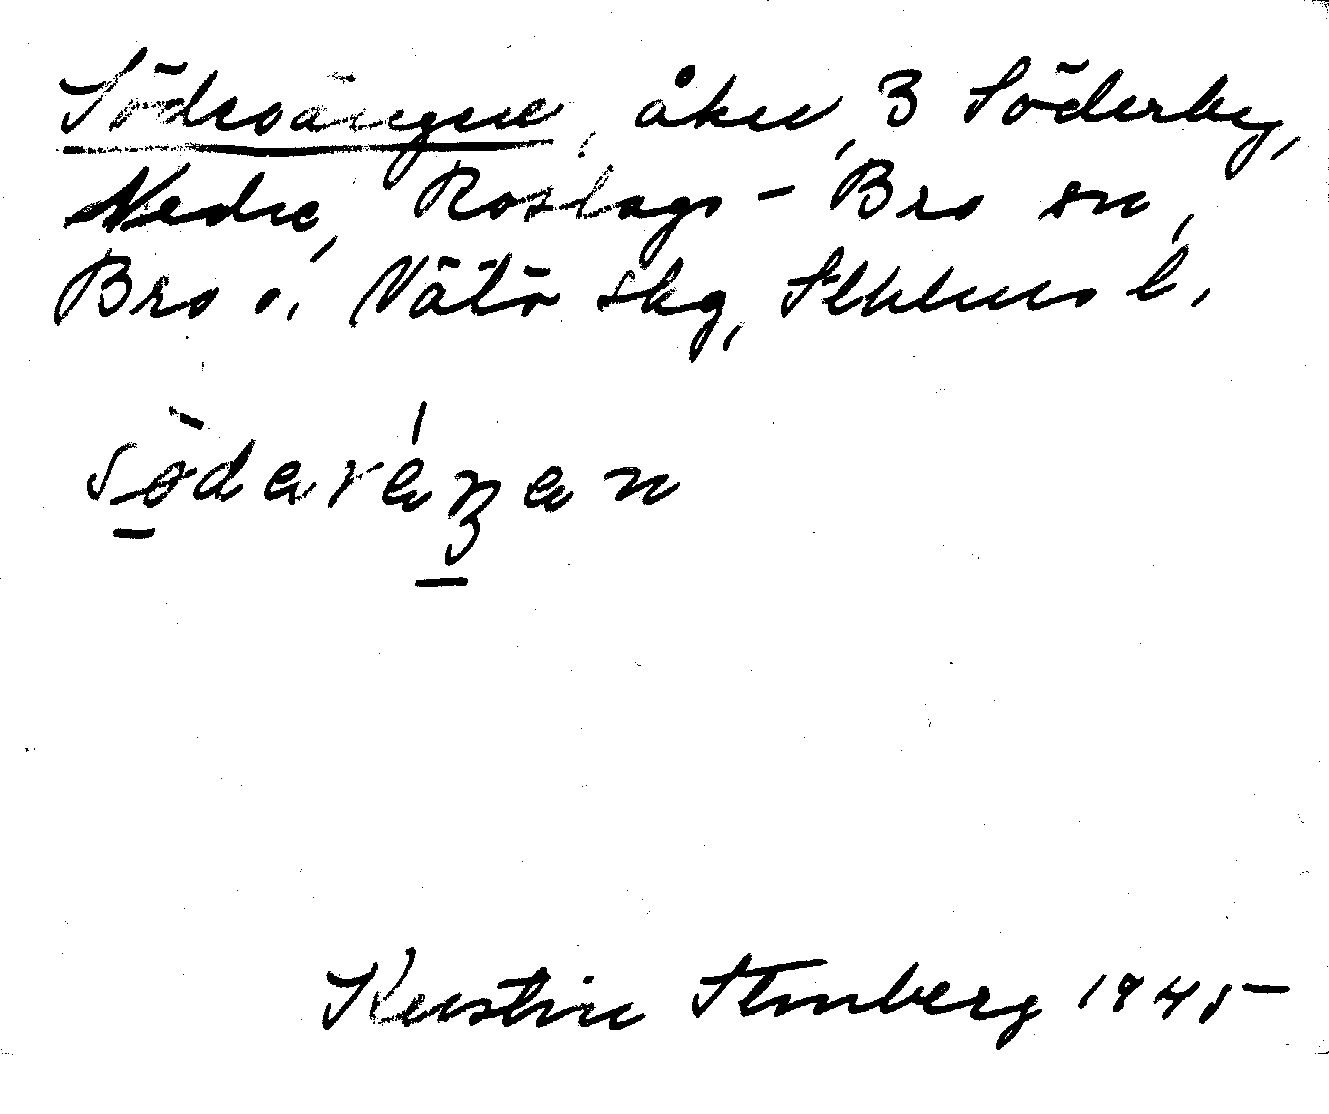 Södra ängen, åker, 3 Söderby,
Nedre, Roslags-Bro sn,
Bro o. Vätö skg, Sthlms l.
södaräŋan
Kerstin Stenberg 1945